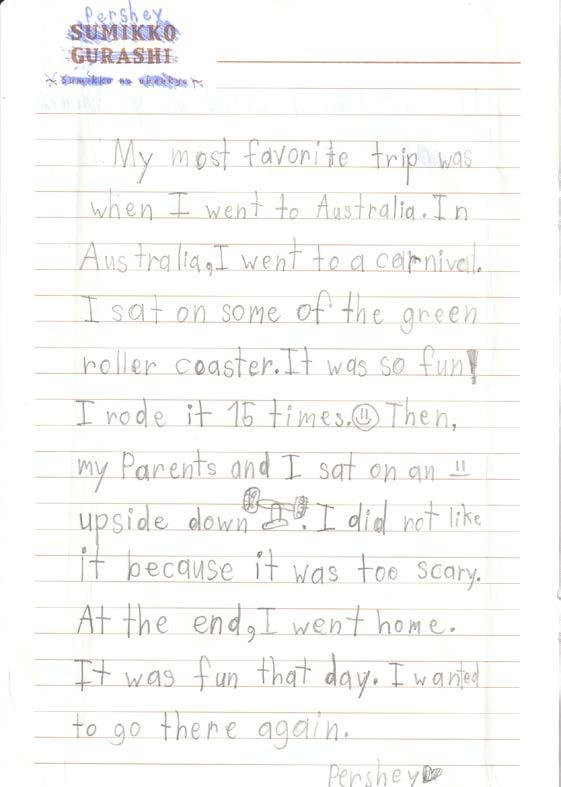 Pershey
SUMIKKO
GURASHI
Sumikko no obenkyo
My most favorite trip was
when I went to Australia. In
Australia, I went to a carnival.
I sat on some of the green
roller coaster. It was so fun!
I rode it 15 times. Then,
my Parents and I sat on an
upside down . I did not like
it because it was too scary.
At the end, I went home.
It was fun that day. I wanted
to go there again.
Pershey